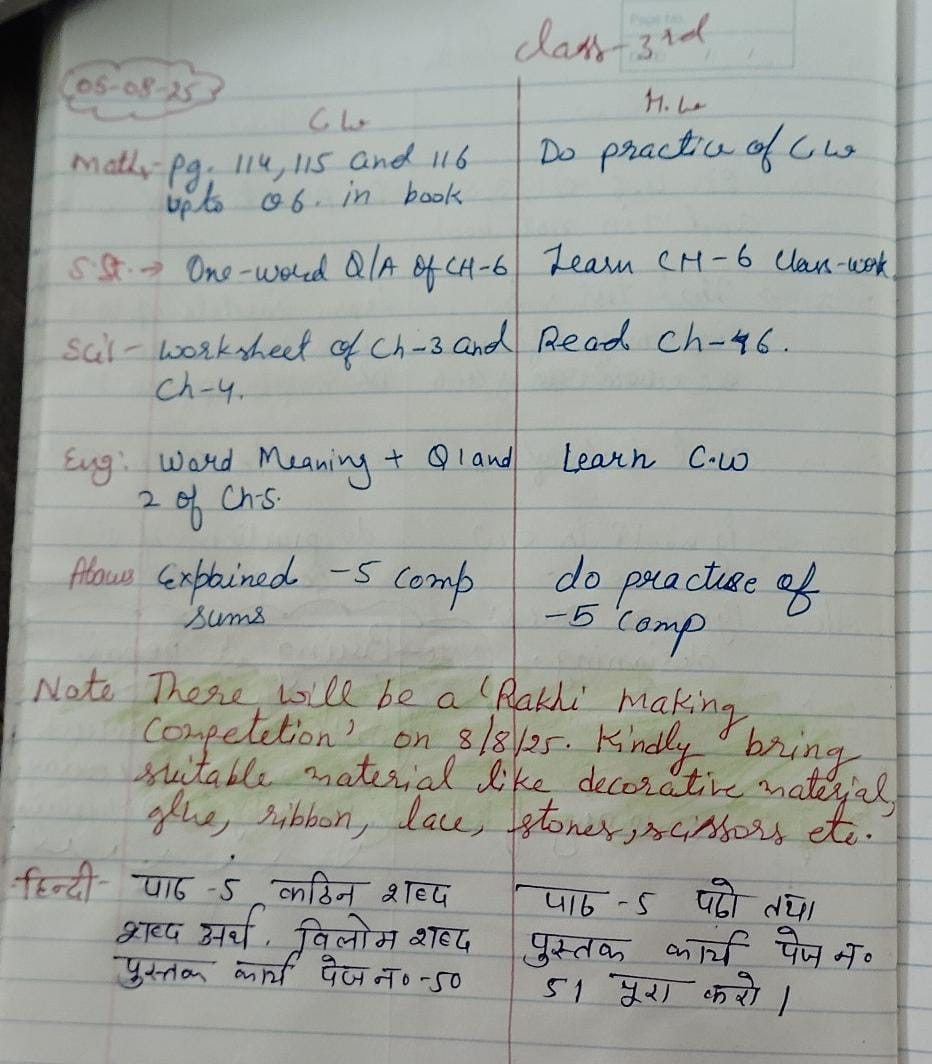 Class-3rd
Page No.
05-08-25
C.W
H.W
Math- Pg. 114, 115 and 116
upto Q6. in book
Do practice of C.W
S.St.→ One-word Q/A of CH-6
Learn CH-6 Class-work
Sci- Worksheet of Ch-3 and
Ch-4.
Read Ch-6.
Eng: Word Meaning + Q1 and
2 of Ch-5.
Learn C.W
Explained -5 comp
sums
do practise of
-5 comp
Note There will be a 'Rakhi making
Competetion' on 8/8/25. Kindly bring
suitable material like decorative material,
glue, ribbon, lace, stones, scissors etc.
हिन्दी- पाठ -5 कठिन शब्द
शब्द अर्थ, विलोम शब्द
पुस्तक कार्य पेज न० -50
पाठ -5 पढो तथा
पुस्तक कार्य पेज न०
51 पूरा करो।